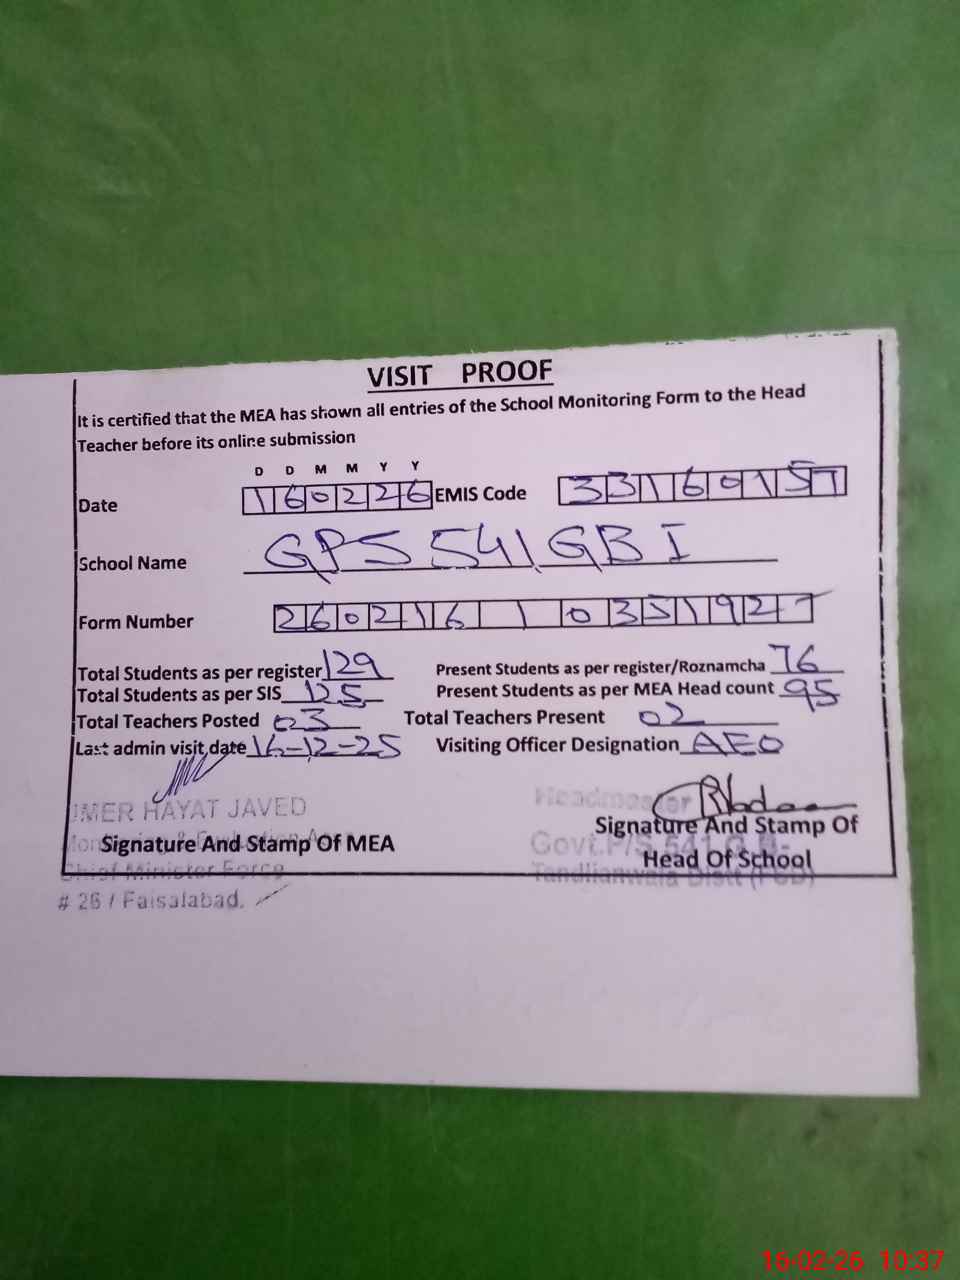 VISIT PROOF
It is certified that the MEA has shown all entries of the School Monitoring Form to the Head
Teacher before its online submission
D D M M Y Y
Date 160226 EMIS Code 33160157
School Name GPS 541 GB I
Form Number 260216 1 0351927
Total Students as per register 129 Present Students as per register/Roznamcha 76
Total Students as per SIS 125 Present Students as per MEA Head count 95
Total Teachers Posted 03 Total Teachers Present 02
Last admin visit date 16-12-25 Visiting Officer Designation AEO
UMER HAYAT JAVED Headmaster
Signature And Stamp Of MEA
Signature And Stamp Of
Head Of School
Govt. P/S 541 G.B.
Chief Minister Force
Tandlianwala Distt (FSD)
# 26 / Faisalabad.
16-02-26 10:37